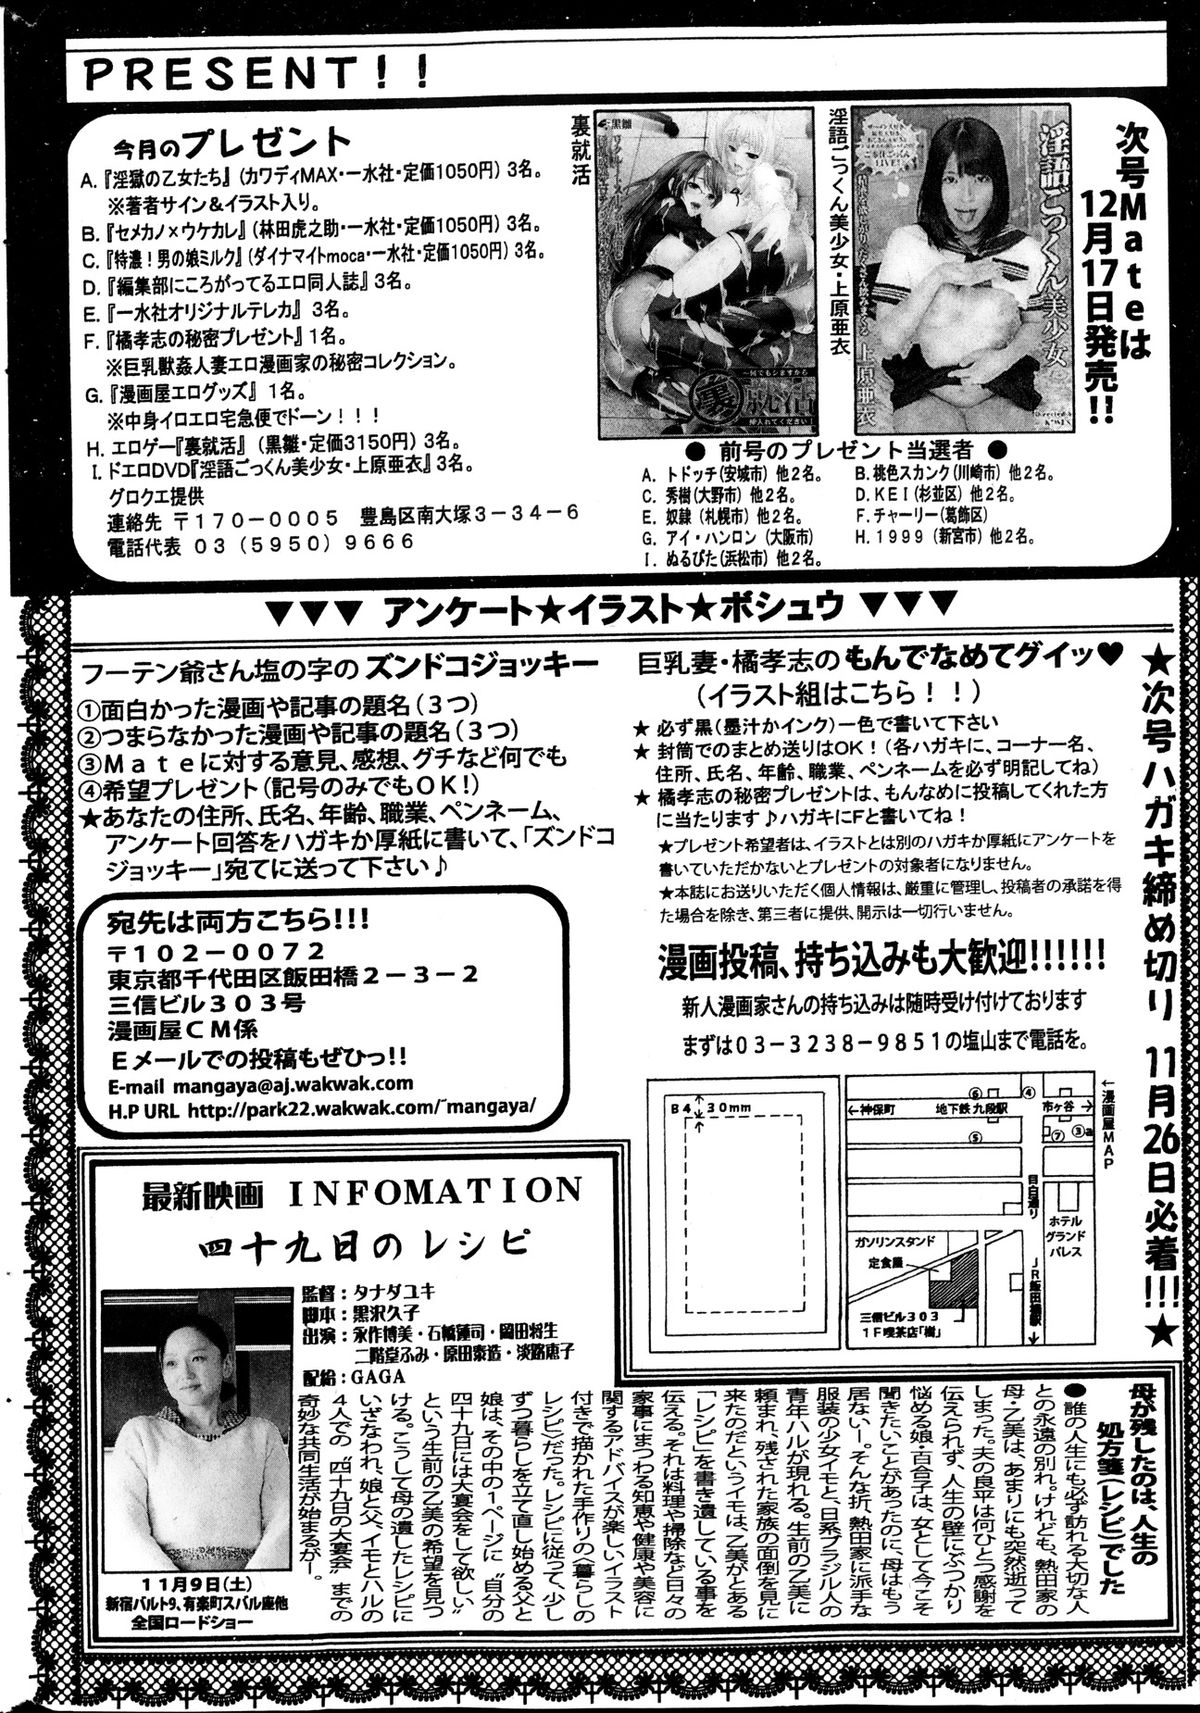 PRESENT!!
今月のプレゼント
A.『淫獄の乙女たち』(カワディMAX・一水社・定価1050円) 3名。
※著者サイン&イラスト入り。
B.『セメカノ×ウケカレ』(林田虎之助・一水社・定価1050円) 3名。
C.『特濃!男の娘ミルク』(ダイナマイトmoca・一水社・定価1050円) 3名。
D.『編集部にころがってるエロ同人誌』3名。
E.『一水社オリジナルテレカ』 3名。
F.『橘孝志の秘密プレゼント』1名。
※巨乳獣姦人妻エロ漫画家の秘密コレクション。
G.『漫画屋エログッズ』 1名。
※中身イロエロ宅急便でドーン!!!
H. エロゲー『裏就活』 (黒雛・定価3150円) 3名。
I. ドエロDVD『淫語ごっくん美少女・上原亜衣』3名。
グロクエ提供
連絡先 〒170-0005 豊島区南大塚3-34-6
電話代表 03 (5950) 9666
裏就活
淫語ごっくん美少女・上原亜衣
黒雛
裏就活
淫語ごっくん美少女
上原亜衣
次号Mateは
12月17日発売!!
● 前号のプレゼント当選者 ●
A. トドッチ(安城市) 他2名。
B. 桃色スカンク(川崎市) 他2名。
C. 秀樹(大野市) 他2名。
D. KEI (杉並区) 他2名。
E. 奴隷 (札幌市) 他2名。
F. チャーリー(葛飾区)
G. アイ・ハンロン (大阪市)
H. 1999 (新宮市) 他2名。
I. ぬるぴた(浜松市) 他2名。
▼▼▼ アンケート★イラスト★ボシュウ ▼▼▼
フーテン爺さん塩の字の ズンドコジョッキー
①面白かった漫画や記事の題名(3つ)
②つまらなかった漫画や記事の題名(3つ)
③Mateに対する意見、感想、グチなど何でも
④希望プレゼント(記号のみでもOK!)
★あなたの住所、氏名、年齢、職業、ペンネーム、
アンケート回答をハガキか厚紙に書いて、「ズンドコ
ジョッキー」宛てに送って下さい♪
宛先は両方こちら!!!
〒102-0072
東京都千代田区飯田橋2-3-2
三信ビル303号
漫画屋CM係
Eメールでの投稿もぜひっ!!
E-mail mangaya@aj.wakwak.com
H.P URL http://park22.wakwak.com/~mangaya/
巨乳妻・橘孝志の もんでなめてグイッ♥
(イラスト組はこちら!!)
★ 必ず黒(墨汁かインク)一色で書いて下さい
★ 封筒でのまとめ送りはOK!(各ハガキに、コーナー名、
住所、氏名、年齢、職業、ペンネームを必ず明記してね)
★ 橘孝志の秘密プレゼントは、もんなめに投稿してくれた方
に当たります♪ハガキにFと書いてね!
★プレゼント希望者は、イラストとは別のハガキか厚紙にアンケートを
書いていただかないとプレゼントの対象者になりません。
★本誌にお送りいただく個人情報は、厳重に管理し、投稿者の承諾を得
た場合を除き、第三者に提供、開示は一切行いません。
漫画投稿、持ち込みも大歓迎!!!!!!
新人漫画家さんの持ち込みは随時受け付けております
まずは03-3238-9851の塩山まで電話を。
★次号ハガキ締め切り 11月26日必着!!!★
B4
30mm
←神保町
地下鉄 九段駅
市ヶ谷→
⑥
④
⑤
⑦
③a
←漫画屋MAP
目白通り
ホテル
グランド
パレス
ガソリンスタンド
定食屋
三信ビル303
1F喫茶店「樹」
JR飯田橋駅
最新映画 INFOMATION
四十九日のレシピ
監督:タナダユキ
脚本:黒沢久子
出演:永作博美・石橋蓮司・岡田将生
二階堂ふみ・原田泰造・淡路恵子
配給:GAGA
11月9日(土)
新宿バルト9、有楽町スバル座他
全国ロードショー
母が残したのは、人生の
処方箋(レシピ)でした
●誰の人生にも必ず訪れる大切な人
との永遠の別れ。けれども、熱田家の
母・乙美は、あまりにも突然逝って
しまった。夫の良平は何ひとつ感謝を
伝えられず、人生の壁にぶつかり
悩める娘・百合子は、女として今こそ
聞きたいことがあったのに、母はもう
居ない―。そんな折、熱田家に派手な
服装の少女イモと、日系ブラジル人の
青年ハルが現れる。生前の乙美に
頼まれ、残された家族の面倒を見に
来たのだというイモは、乙美がとある
「レシピ」を書き遺している事を
伝える。それは料理や掃除など日々の
家事にまつわる知恵や健康や美容に
関するアドバイスが楽しいイラスト
付きで描かれた手作りの〈暮らしの
レシピ〉だった。レシピに従って、少し
ずつ暮らしを立て直し始める父と
娘は、その中の1ページに"自分の
四十九日には大宴会をして欲しい"
という生前の乙美の希望を見つ
ける。こうして母の遺したレシピに
いざなわれ、娘と父、イモとハルの
4人での"四十九日の大宴会"までの
奇妙な共同生活が始まるが―。